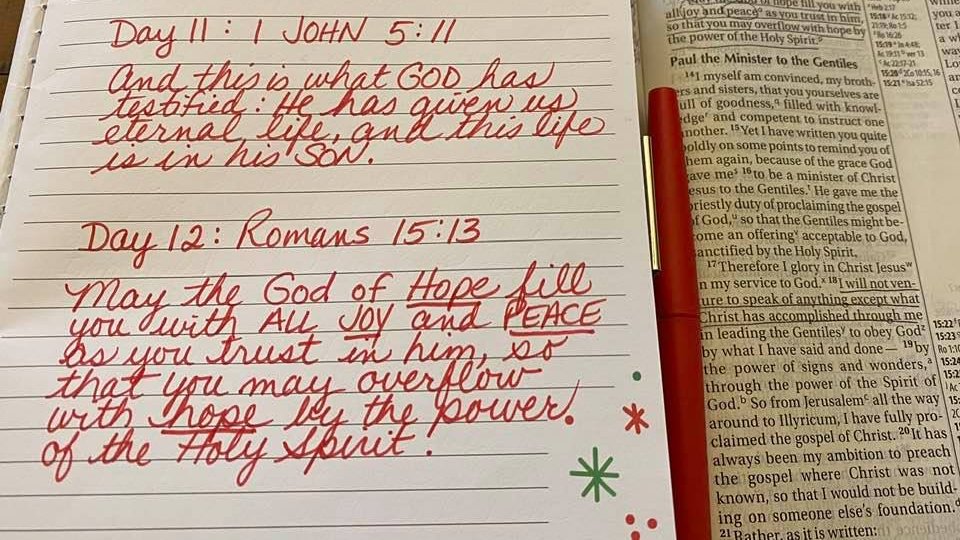 Day 11: 1 JOHN 5:11
And this is what GOD has
testified: He has given us
eternal life, and this life
is in his SON.
Day 12: Romans 15:13
May the God of Hope fill
you with ALL JOY and PEACE
as you trust in him, so
that you may overflow
with hope by the power
of the Holy Spirit.
of hope fill you with
all joy and peace as you trust in him,
so that you may overflow with hope by
the power of the Holy Spirit.
Paul the Minister to the Gentiles
14 I myself am convinced, my broth-
ers and sisters, that you yourselves are
ull of goodness, q filled with knowl-
edge r and competent to instruct one
nother. 15 Yet I have written you quite
oldly on some points to remind you of
hem again, because of the grace God
ave me s 16 to be a minister of Christ
esus to the Gentiles. t He gave me the
riestly duty of proclaiming the gospel
f God, u so that the Gentiles might be-
ome an offering v acceptable to God,
anctified by the Holy Spirit.
17 Therefore I glory in Christ Jesus w
n my service to God. x 18 I will not ven-
ure to speak of anything except what
Christ has accomplished through me
in leading the Gentiles y to obey God z
by what I have said and done— 19 by
the power of signs and wonders, a
through the power of the Spirit of
God. b So from Jerusalem c all the way
around to Illyricum, I have fully pro-
claimed the gospel of Christ. 20 It has
always been my ambition to preach
the gospel where Christ was not
known, so that I would not be build-
ing on someone else's foundation. d
21 Rather, as it is written: